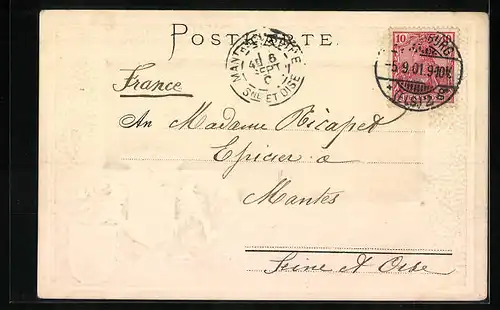 POSTKARTE.
MANTES
6
SEPT
SNE ET OISE
10 10
BURG
-5.9.01.9-10V.
France
An Madame Ricapet
Epicier a
Mantes
Seine et Oise